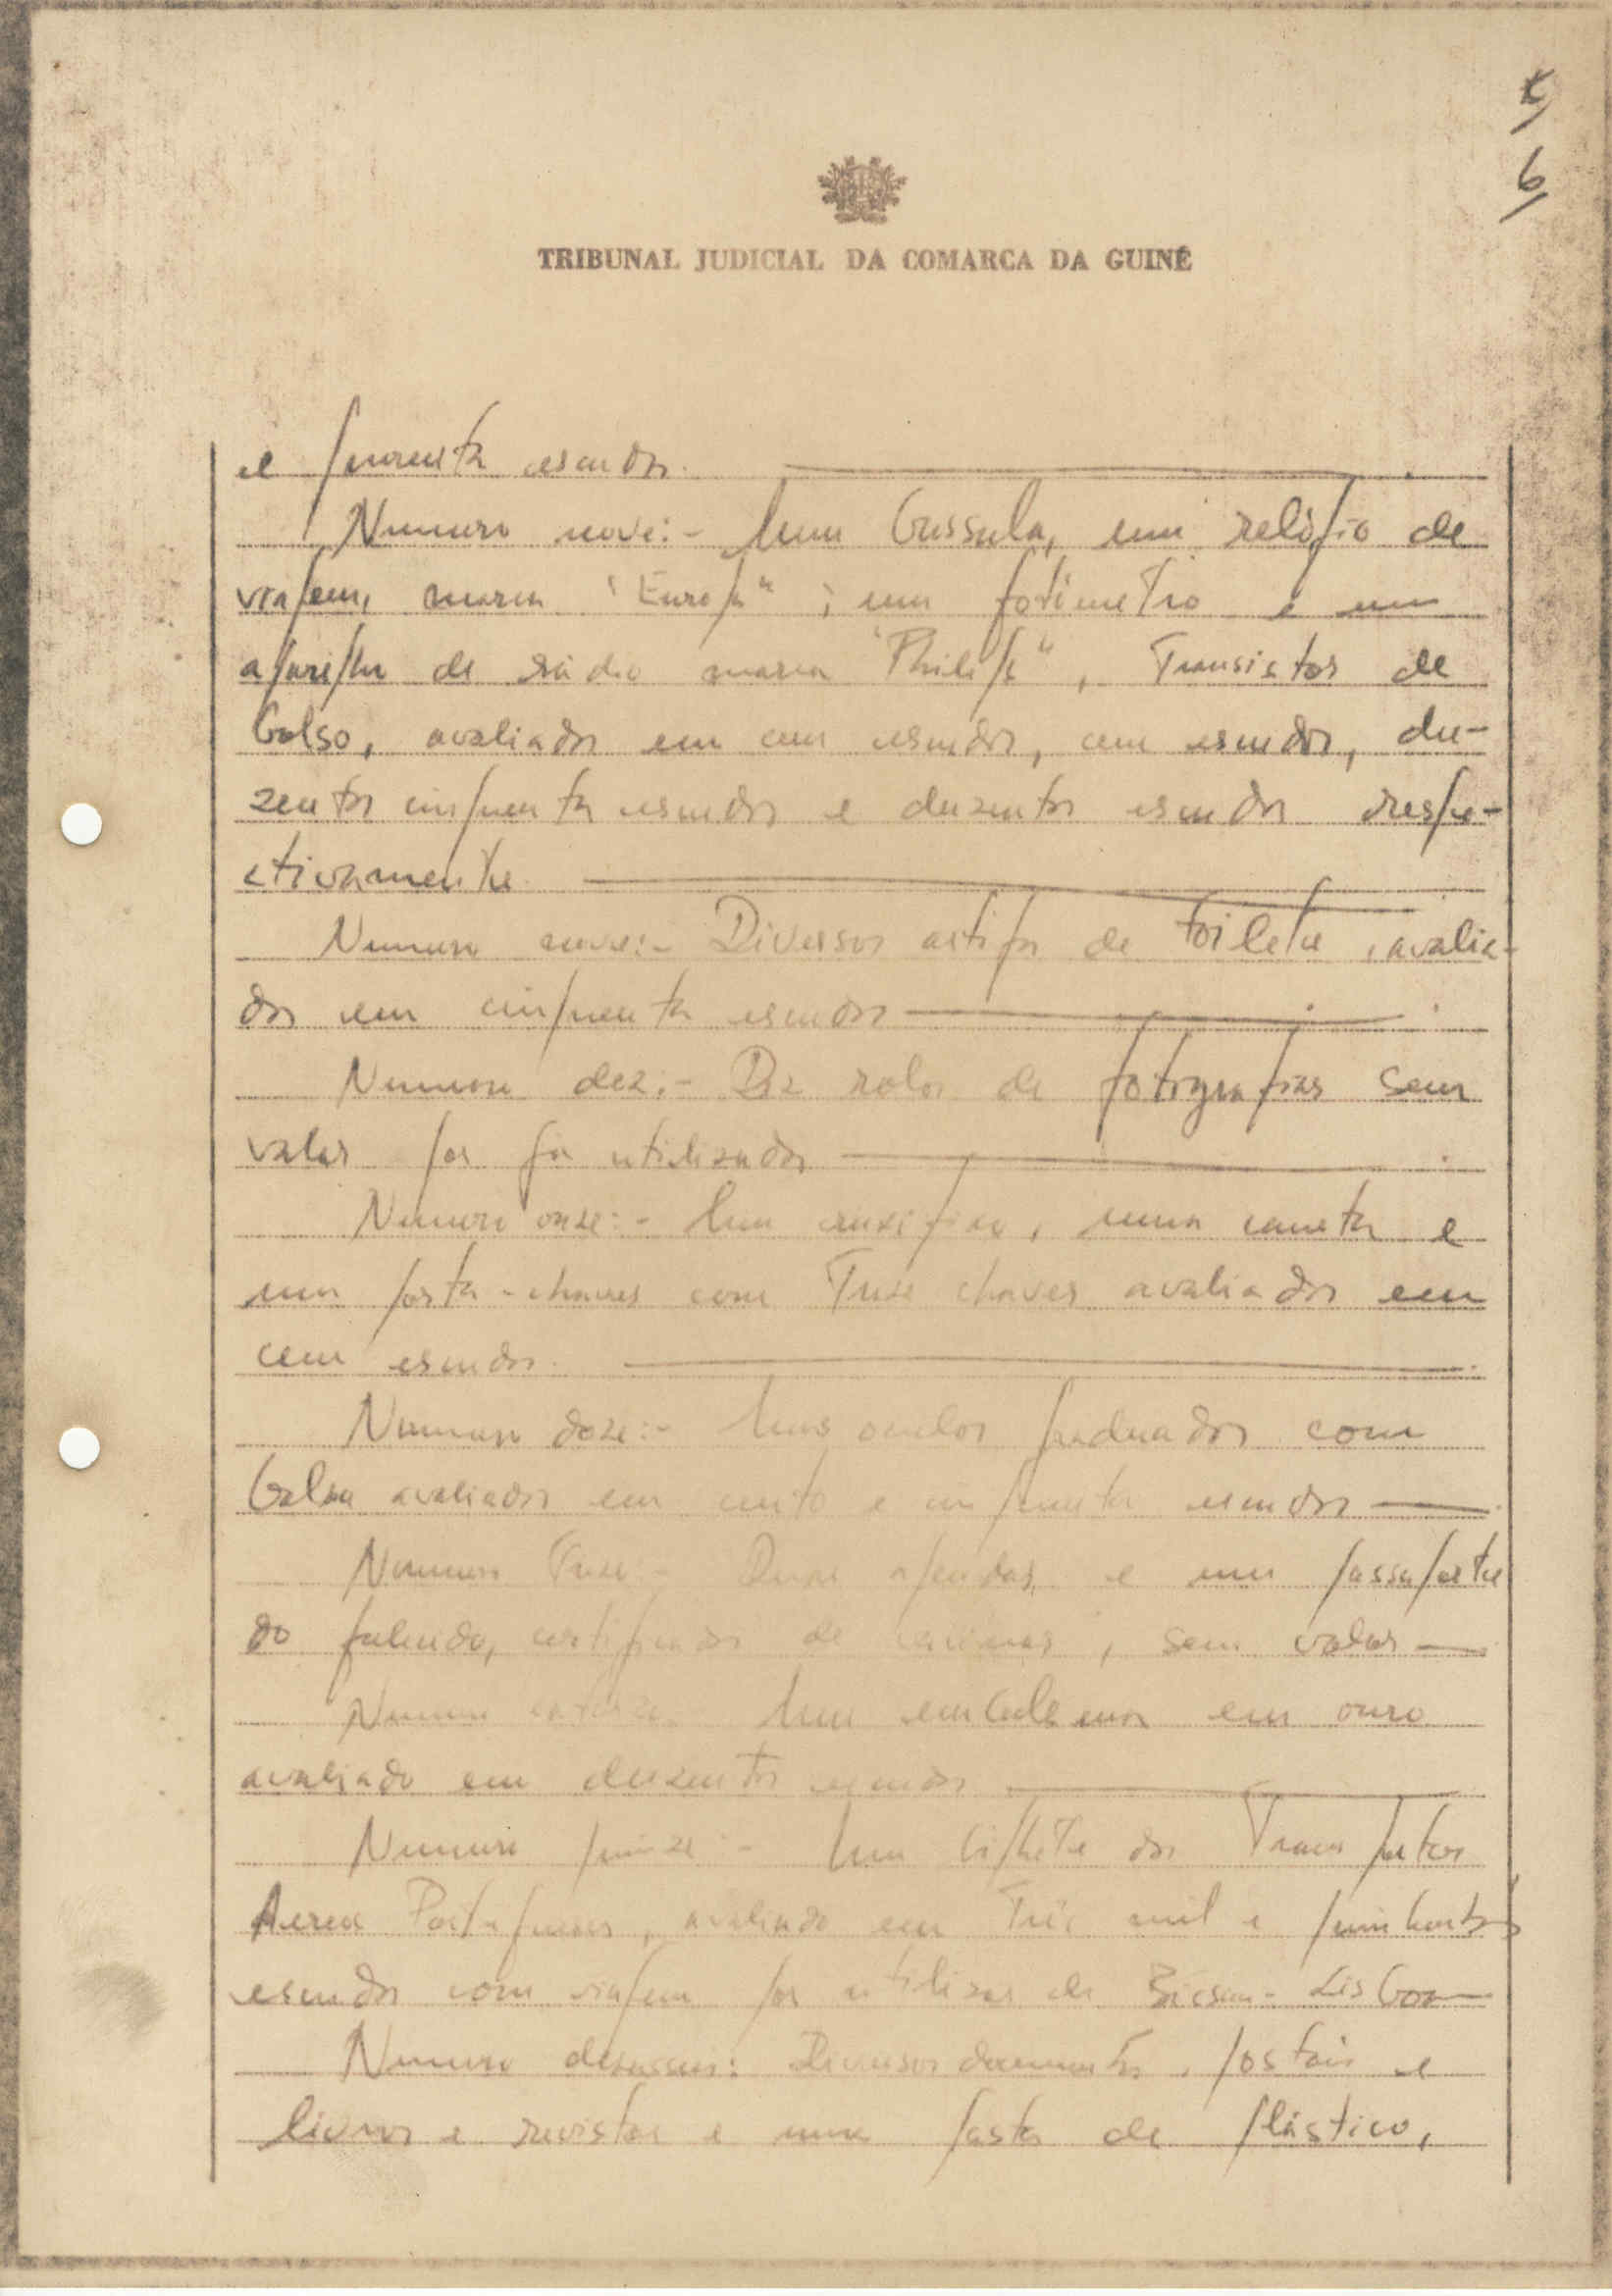 5
6
TRIBUNAL JUDICIAL DA COMARCA DA GUINÉ
e quarenta escudos.
Numero nove:- Uma bussula, um relógio de
viagem, marca "Europa"; um fotimetro e um
aparelho de rádio marca "Philips", Transistor de
bolso, avaliados em cem escudos, cem escudos, du-
zentos cinquenta escudos e duzentos escudos respe-
ctivamente
Numero nove:- Diversos artigos de toilete, avalia-
dos em cinquenta escudos
Numero dez:- Dez rolos de fotografias sem
valor por já utilizados
Numero onze:- Um crucifixo, uma caneta e
um porta-chaves com Treze chaves avaliados em
cem escudos.
Numero doze:- Uns oculos graduados com
bolsa avaliados em cento e cinquenta escudos
Numero Treze:- Duas agendas e um passaporte
do falecido, certificados de vacinas, sem valor
Numero catorze. Um emblema em ouro
avaliado em duzentos escudos
Numero quinze:- Um bilhete dos Transportes
Aereos Portugueses, avaliado em Três mil e quinhentos
escudos com viagem por utilizar de Bissau-Lisboa
Numero dezasseis: Diversos documentos, postais e
livros e revistas e uma pasta de plástico,